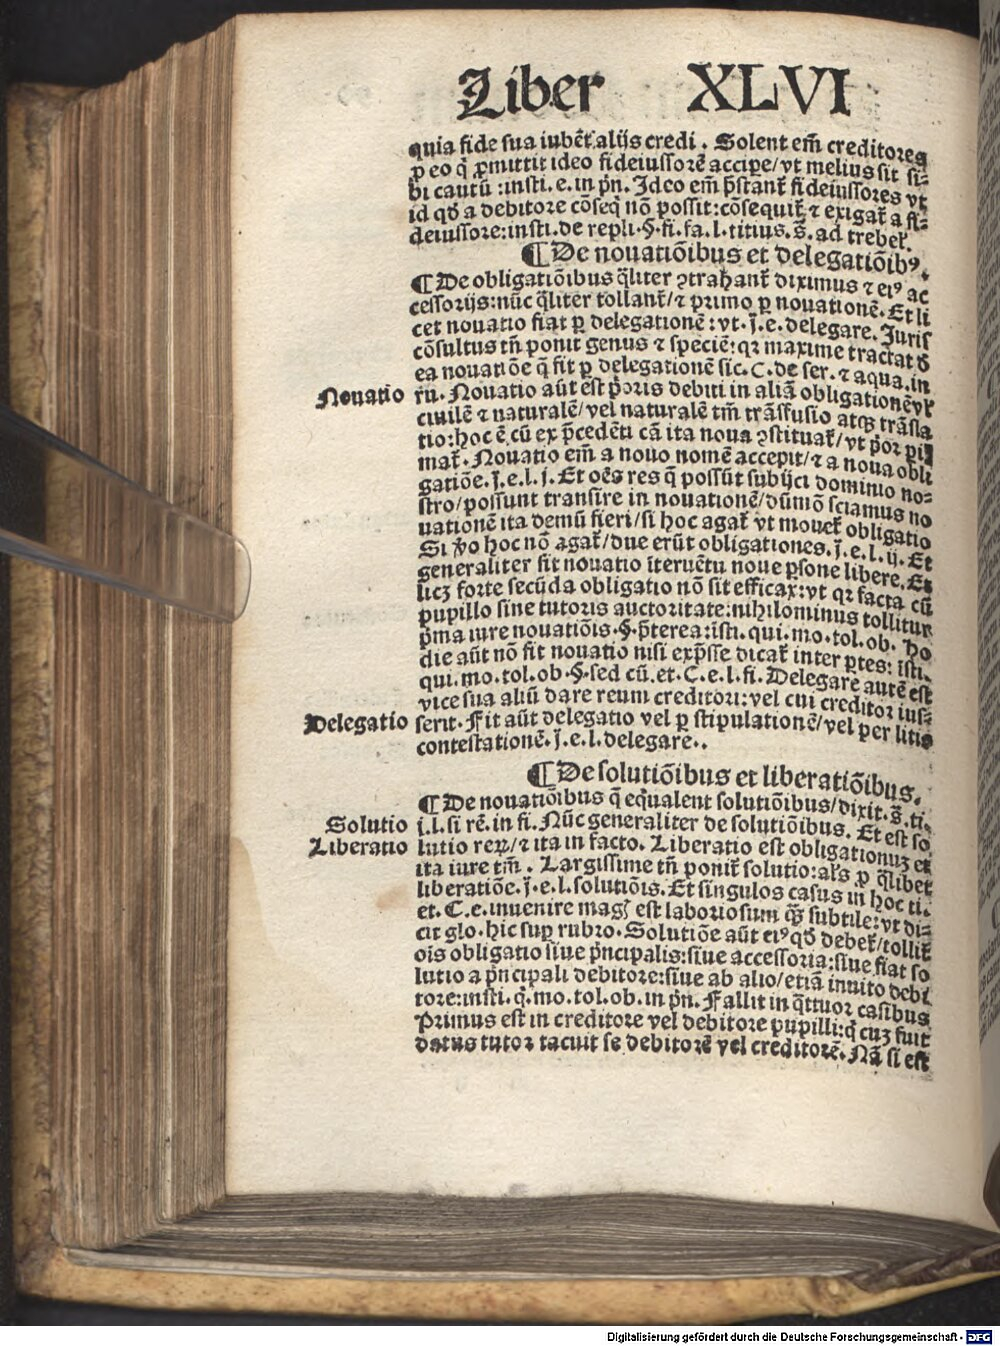 Liber XLVI
quia fide sua iubēt alijs credi . Solent em̄ creditores
ꝑ eo q̄ ꝓmittit ideo fideiussorē accipe/vt melius sit si⸗
bi cautū :insti. e. in pn̄. Ideo em̄ p̄stant᷑ fideiussores vt
id qd̄ a debitore cōseq̄ nō possit:cōsequit᷑ ⁊ exigat᷑ a fi⸗
deiussore:insti.de repli.§.fi.fa.l.titius.s̄.ad trebel̄.
¶ De nouatiōibus et delegatiōibꝰ.
¶ De obligatiōibus q̄liter ꝯtrahant᷑ diximus ⁊ eiꝰ ac
cessorijs:nūc q̄liter tollant᷑/⁊ primo ꝑ nouationē. Et li
cet nouatio fiat ꝑ delegationē:vt. j̄.e.delegare. Juris
cōsultus tn̄ ponit genus ⁊ speciē:qꝛ maxime tractat d̄
ea nouatiōe q̄ fit ꝑ delegationē sic.C.de ser.⁊ aqua.in
Nouatio ru. Nouatio aūt est p̄oris debiti in aliā obligationē vl̄
ciuilē ⁊ naturalē/vel naturalē tm̄ trāsfusio atqꝫ trāsla
tio:hoc ē cū ex p̄cedēti cā ita noua ꝯstituat᷑/vt p̄or pi
mat᷑. Nouatio em̄ a nouo nomē accepit/⁊ a noua obli
gatiōe. j̄.e.l.j. Et oēs res q̄ possūt subijci dominio no⸗
stro/possunt transire in nouationē/dūmō sciamus no
uationē ita demū fieri/si hoc agat᷑ vt nouet᷑ obligatio
Si v̄o hoc nō agat᷑/due erūt obligationes. j̄.e.l.ij. Et
generaliter fit nouatio īteruētu noue ꝑsone libere. Et
licꝫ forte secūda obligatio nō sit efficax:vt qꝛ facta cū
pupillo sine tutoris auctoritate:nihilominus tollitur
p̄ma iure nouatiōis.§.p̄terea:isti. qui.mo.tol.ob. Ho
die aūt nō fit nouatio nisi exp̄sse dicat᷑ inter ꝑtes: isti.
qui.mo.tol.ob.§.sed cū.et.C.e.l.fi. Delegare autē est
vice sua aliū dare reum creditori:vel cui creditor ius⸗
Delegatio serit. Fit aūt delegatio vel ꝑ stipulationē/vel per litis
contestationē. j̄.e.l.delegare..
¶ De solutiōibus et liberatiōibus.
¶ De nouatiōibus q̄ equalent solutiōibus/dixit.s̄.ti.
Solutio j.l.si rē.in fi. Nūc generaliter de solutiōibus. Et est so
Liberatio lutio reꝝ/⁊ ita in facto. Liberatio est obligationuꝫ et
ita iure tm̄ . Largissime tn̄ ponit᷑ solutio:als̄ ꝑ q̄libet
liberatiōe. j̄.e.l.solutiōis. Et singulos casus in hoc ti.
et. C.e.inuenire maḡ est laboriosum qꝫ̄ subtile:vt di⸗
cit glo.hic suꝑ rubro. Solutiōe aūt eiꝰ qd̄ debet᷑/tollit᷑
ois obligatio siue p̄ncipalis:siue accessoria:siue fiat so
lutio a p̄ncipali debitore:siue ab alio/etiā inuito debi
tore:insti.q̄.mo.tol.ob.in pn̄. Fallit in q̄ttuor casibus
Primus est in creditore vel debitore pupilli:q̄ cuꝫ fuit
datus tutor tacuit se debitorē vel creditorē. Nā si est
Digitalisierung gefördert durch die Deutsche Forschungsgemeinschaft - DFG